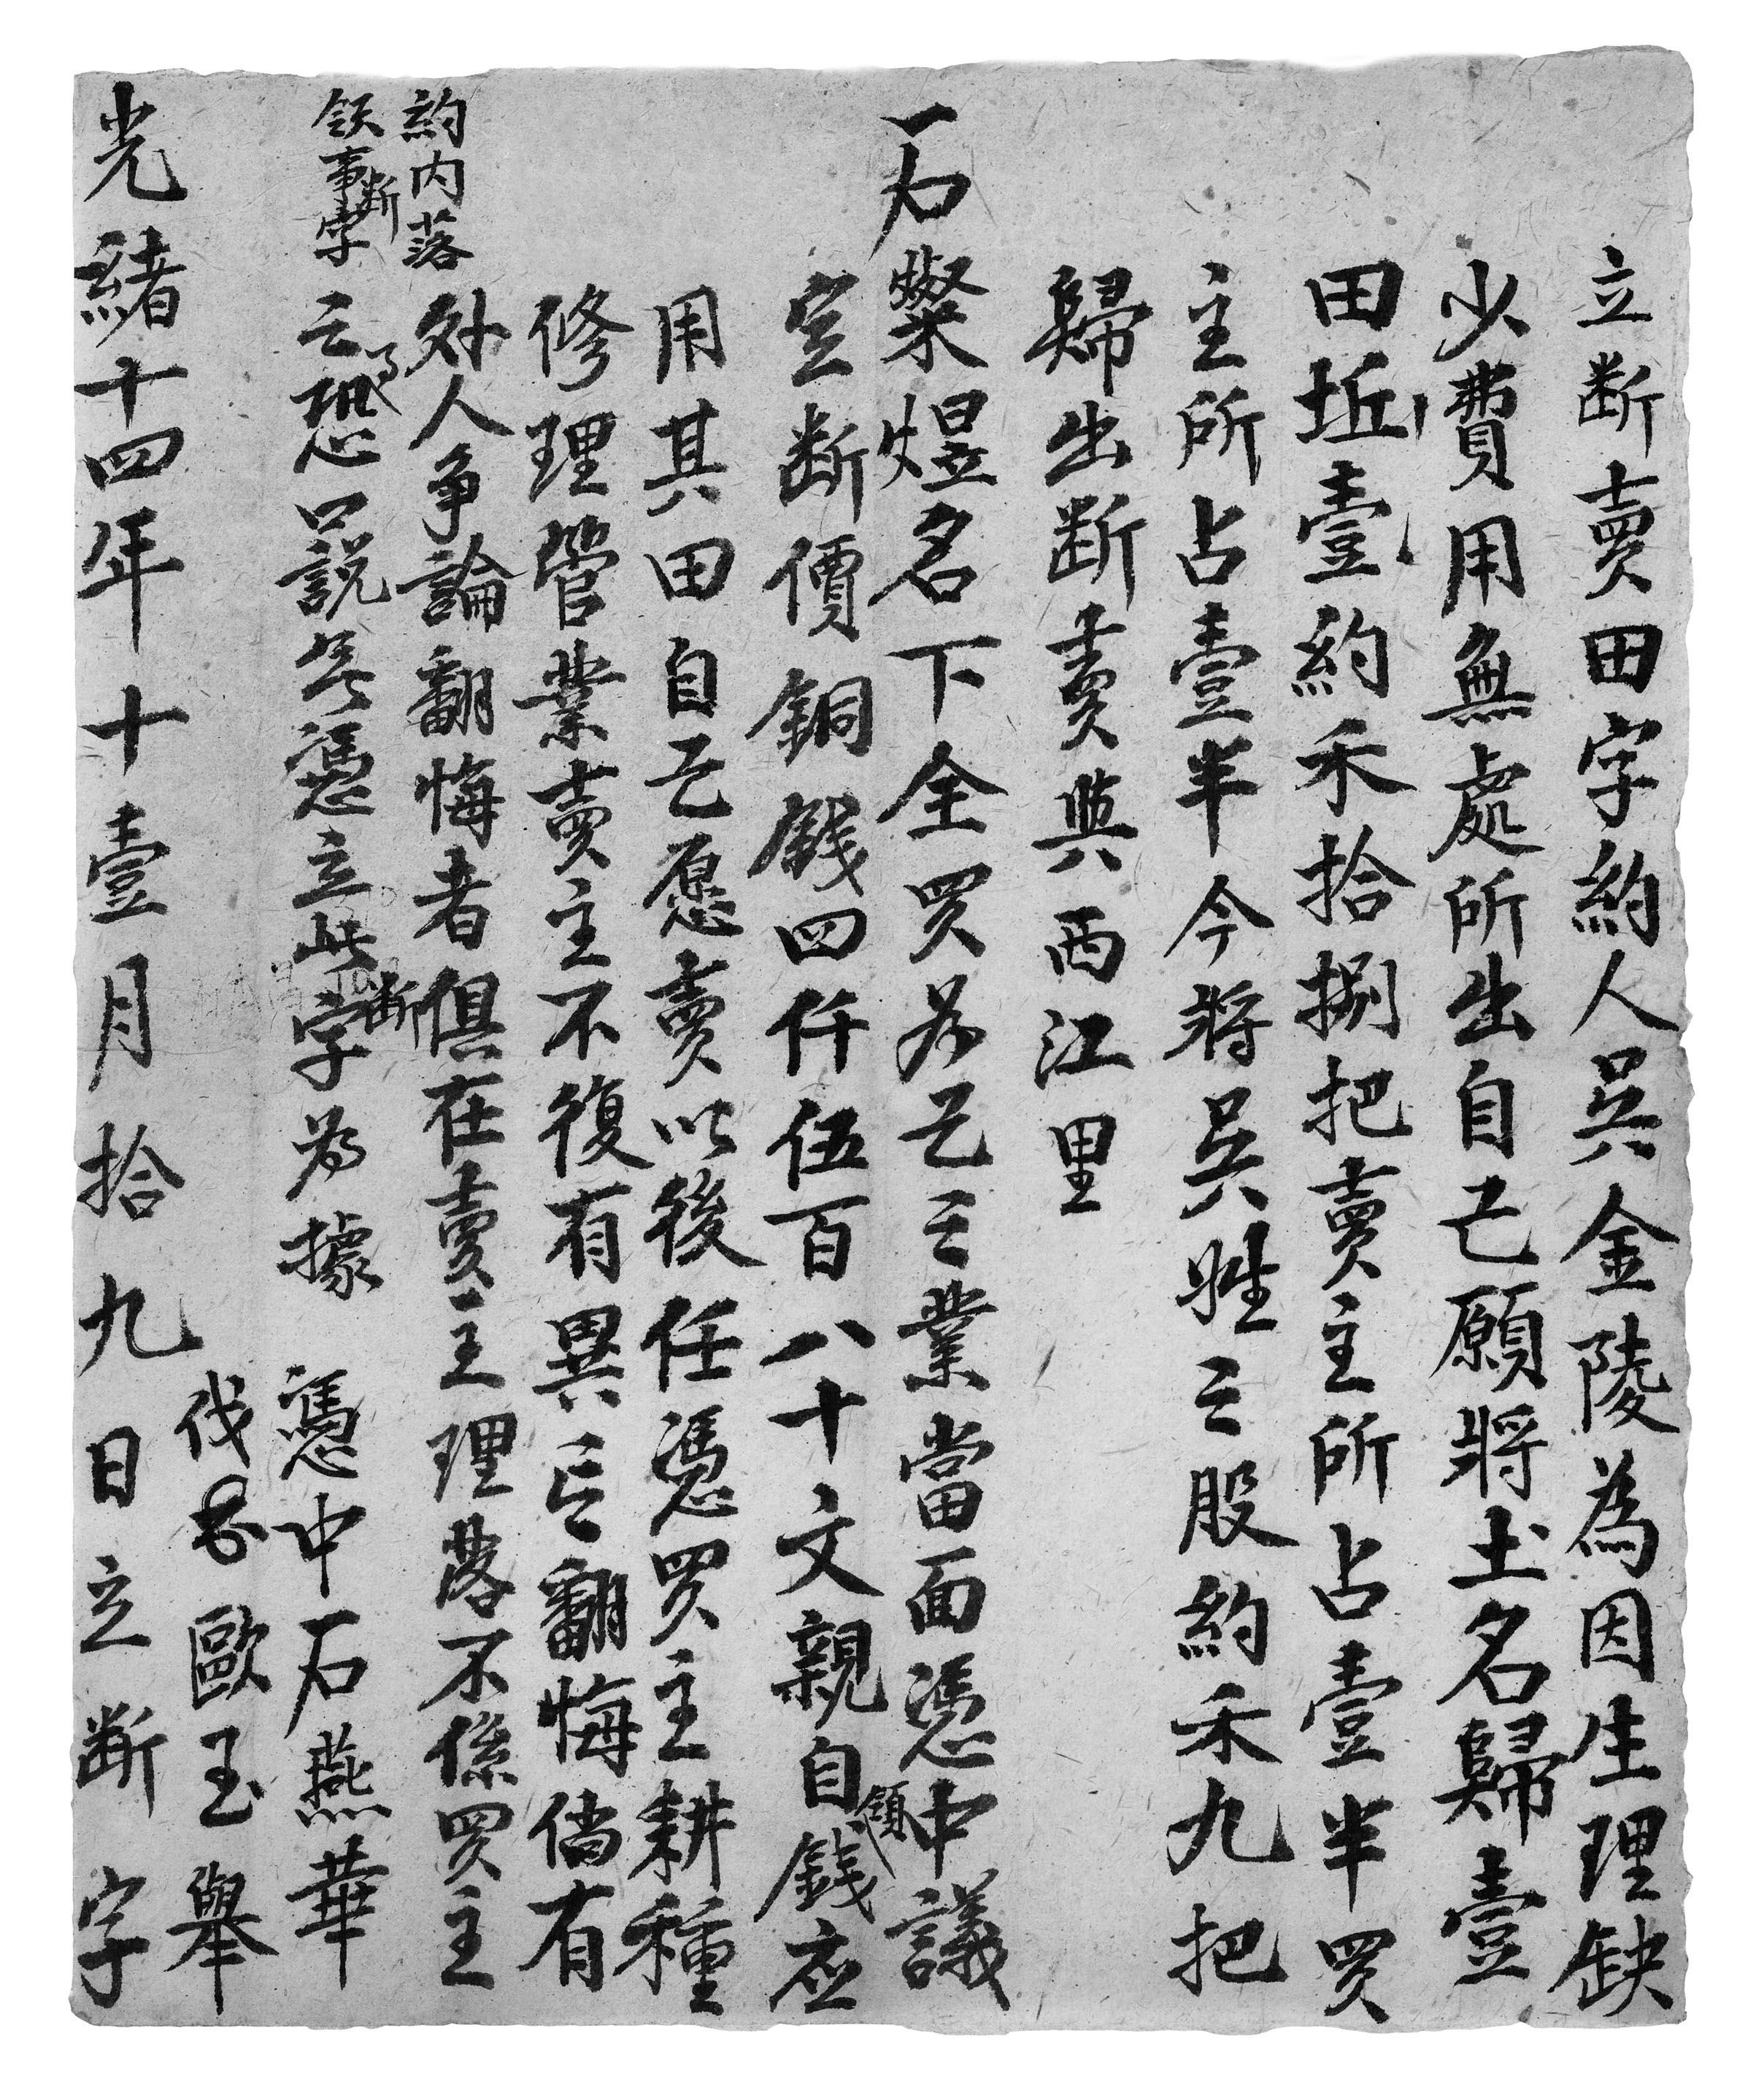 立断賣田字約人吳金陵為因生理缺
少費用無處所出自己願將土名歸壹
田坵壹約禾拾捌把賣主所占壹半買
主所占壹半今將吳姓之股約禾九把
歸出断賣與西江里
石燦煜名下全買為己之業當面憑中議
定断價銅錢四仟伍百八十文親自領錢应
用其田自己愿賣以後任憑買主耕種
修理管業賣主不復有異言翻悔倘有
外人争論翻悔者俱在賣主理落不係買主
約内落
领事断字
之事恐口説無憑立此断字為據 憑中石燕華
代筆歐玉舉
光緒十四年十壹月拾九日立断字